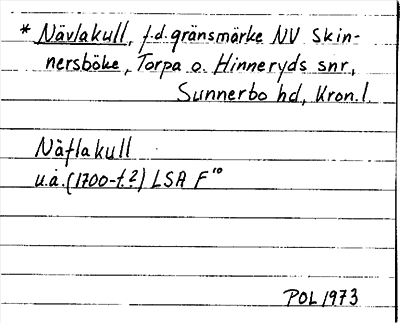 * Nävlakull, f.d. gränsmärke NV Skin-
nersböke, Torpa o. Hinneryds snr,
Sunnerbo hd, Kron. l.
Näflakull
u.å. (1700-t.?) LSA F¹⁰
POL 1973